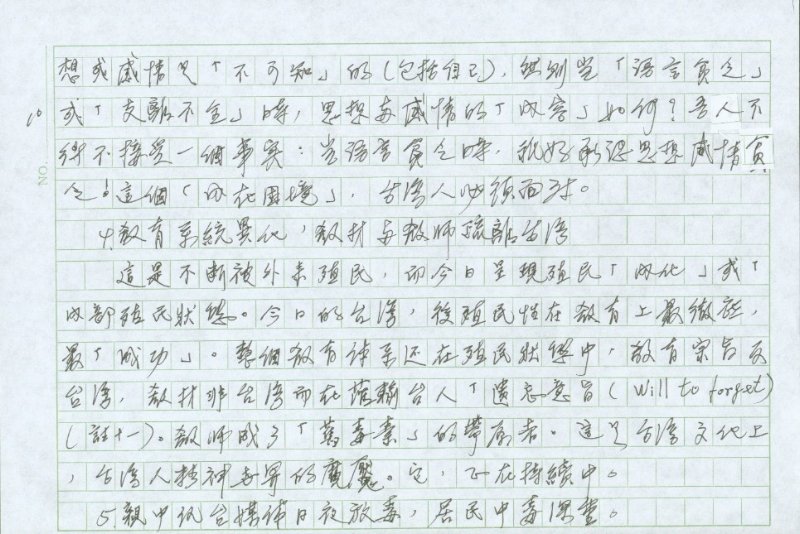 想或感情是「不可知」的(包括自己),然則當「語言貧乏」
10 或「支離不全」時,思想與感情的「內容」如何?吾人不
得不接受一個事實:當語言貧乏時,只好承認思想感情貧
乏!這個「內在困境」,台灣人必須面對。
4.教育系統異化,教材與教師疏離台灣
這是不斷被外來殖民,而今日呈現殖民「內化」或「
內部殖民狀態。今日的台灣,後殖民性在教育上最徹底,
最「成功」。整個教育体系还在殖民狀態中,教育宗旨反
台灣,教材非台灣而在灌輸台人「遺忘意旨(Will to forget)
(註十一)。教師成了「萬毒素」的帶原者。這是台灣文化上
,台灣人精神世界的魔魘。它,正在持續中。
5.親中仇台媒体日夜放毒,居民中毒深重。
NO.